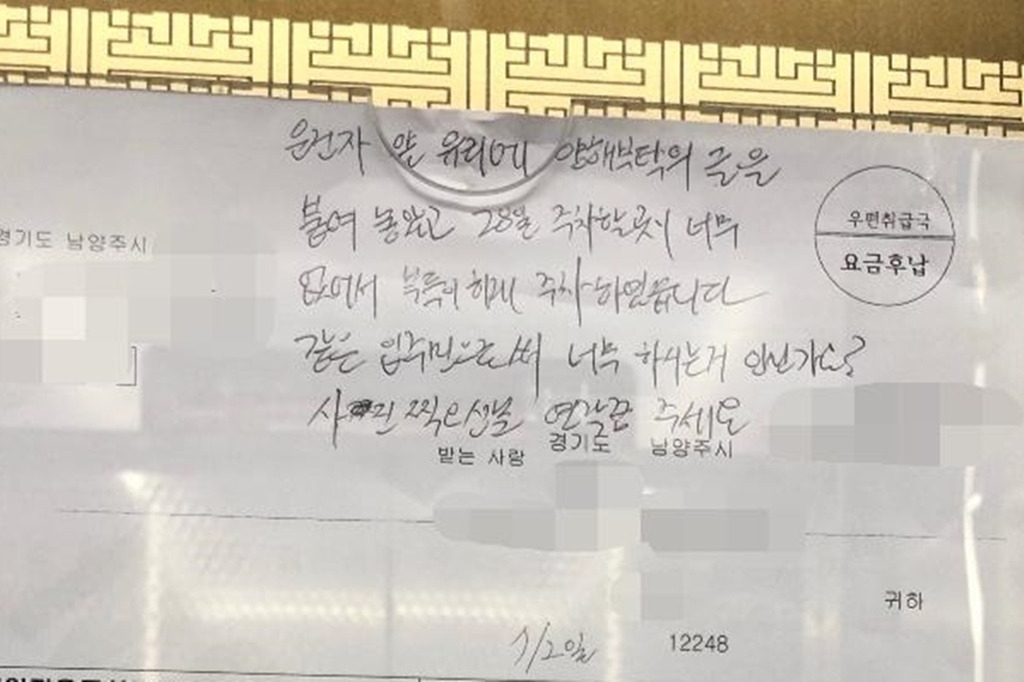 운전자 앞 유리에 양해부탁의 글을
붙여 놓았고 28일 주차할곳이 너무
없어서 부득이하게 주차하였습니다
같은 입주민으로써 너무 하시는거 안닌가요?
사진 찍으신분 연락좀 주세요
경기도 남양주시
우편취급국
요금후납
받는 사람 경기도 남양주시
귀하
12248